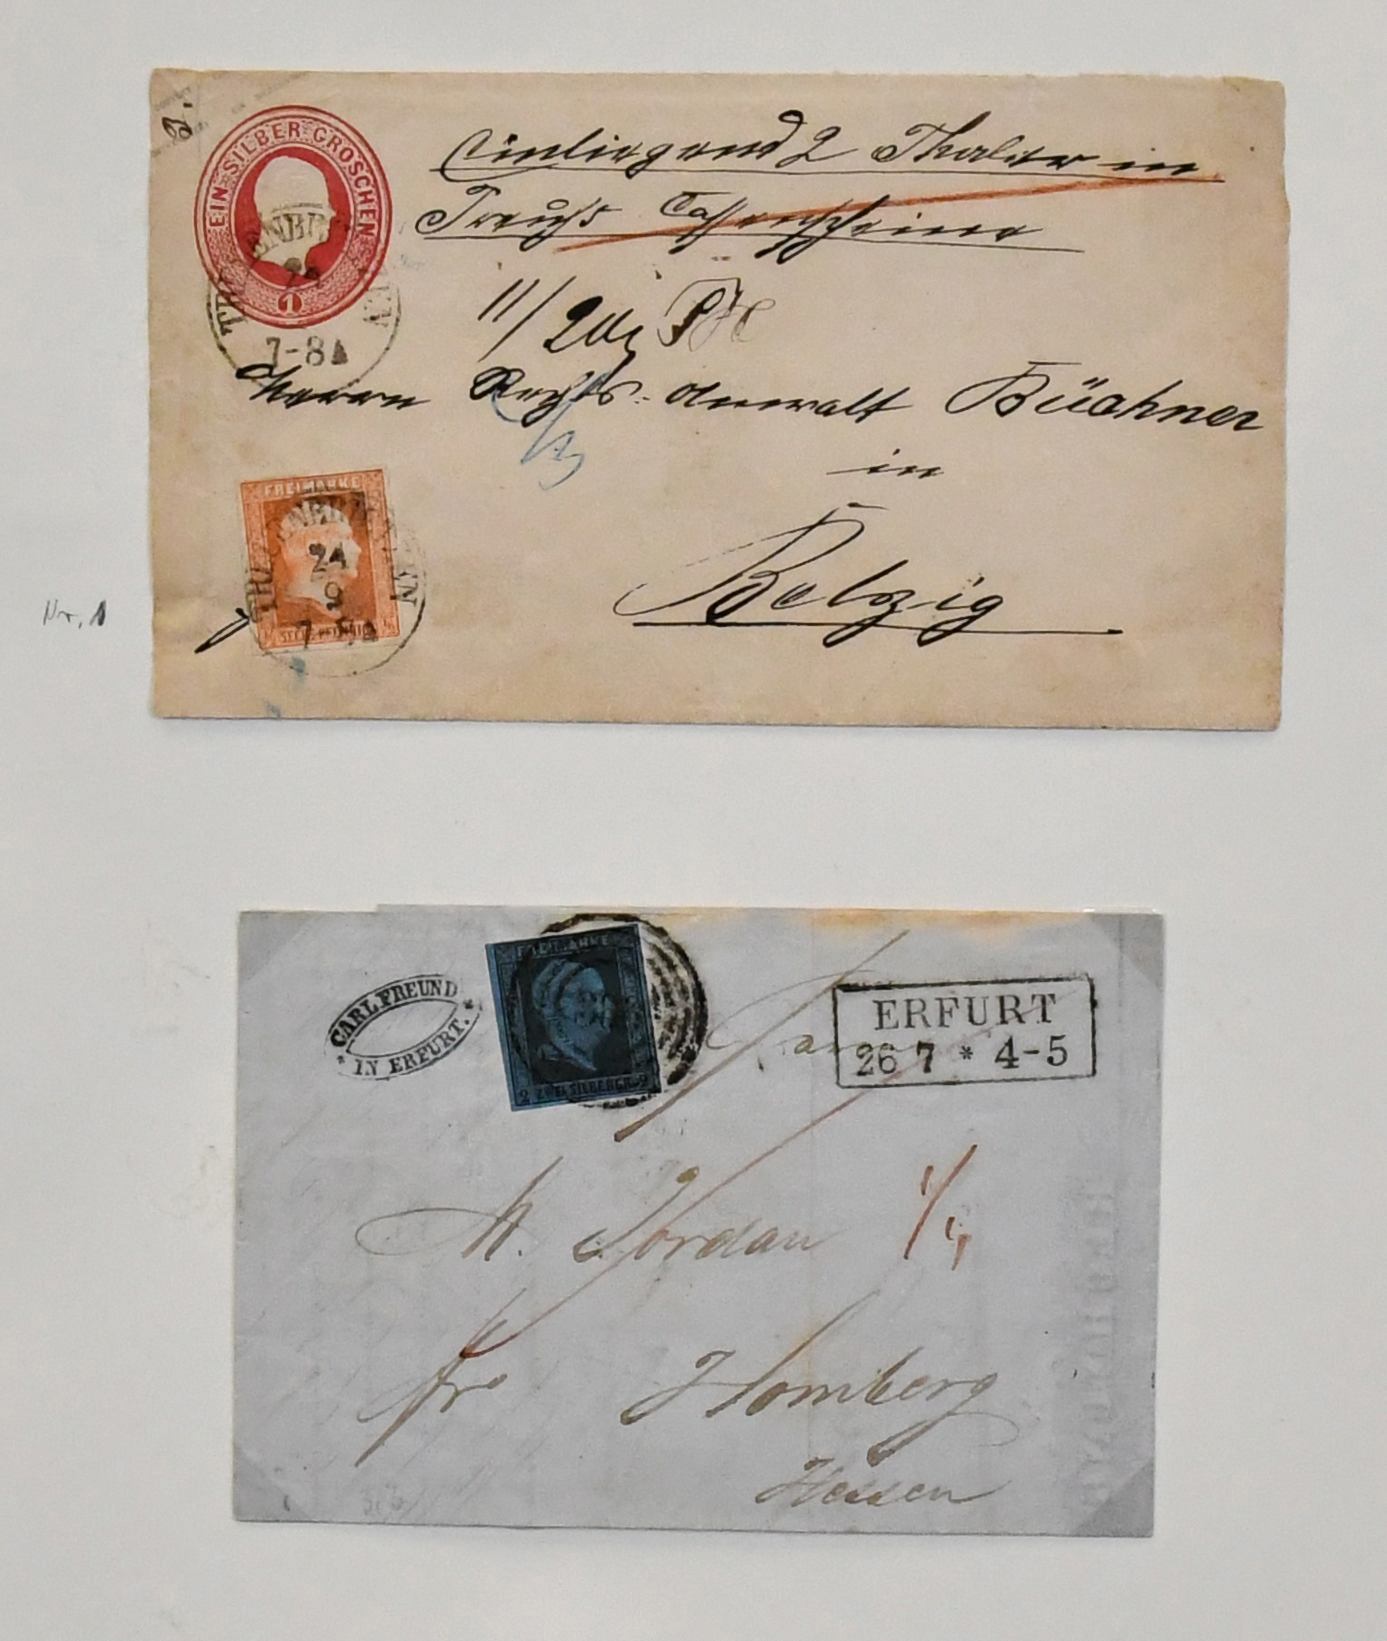 2.
EIN SILBER GROSCHEN
1
7-8
Einliegend 2 Thaler in
Preuß Cassenscheine
11/
Herrn Rechts-Anwalt Büchner
in
Belzig
FREIMARKE
24
9
7
Nro. 1
FREIMARKE
2 ZWEI SILBERGR. 2
CARL FREUND
* IN ERFURT. *
ERFURT
26 7 * 4-5
M. Jordan
fro Homberg
Hessen